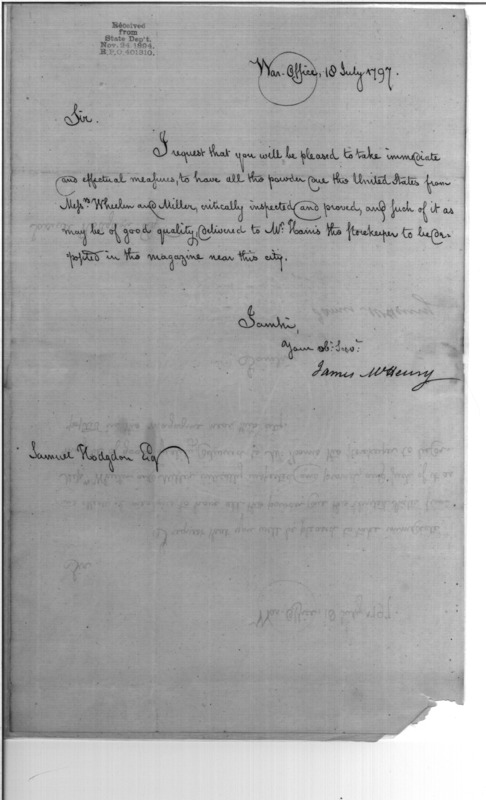 Received
from
State Dep't.
Nov. 24 1894.
R.P.O. 401310.
War-Office, 18 July 1797.
Sir.
I request that you will be pleased to take immediate
and effectual measures, to have all the powder due the United States from
Mess.rs Wheelen and Miller, critically inspected and proved, and such of it as
may be of good quality, delivered to Mr. Harris the storekeeper to be de-
posited in the magazine near this city.
I am Sir,
Your ob.t Serv.t
James McHenry
Samuel Hodgdon Esq